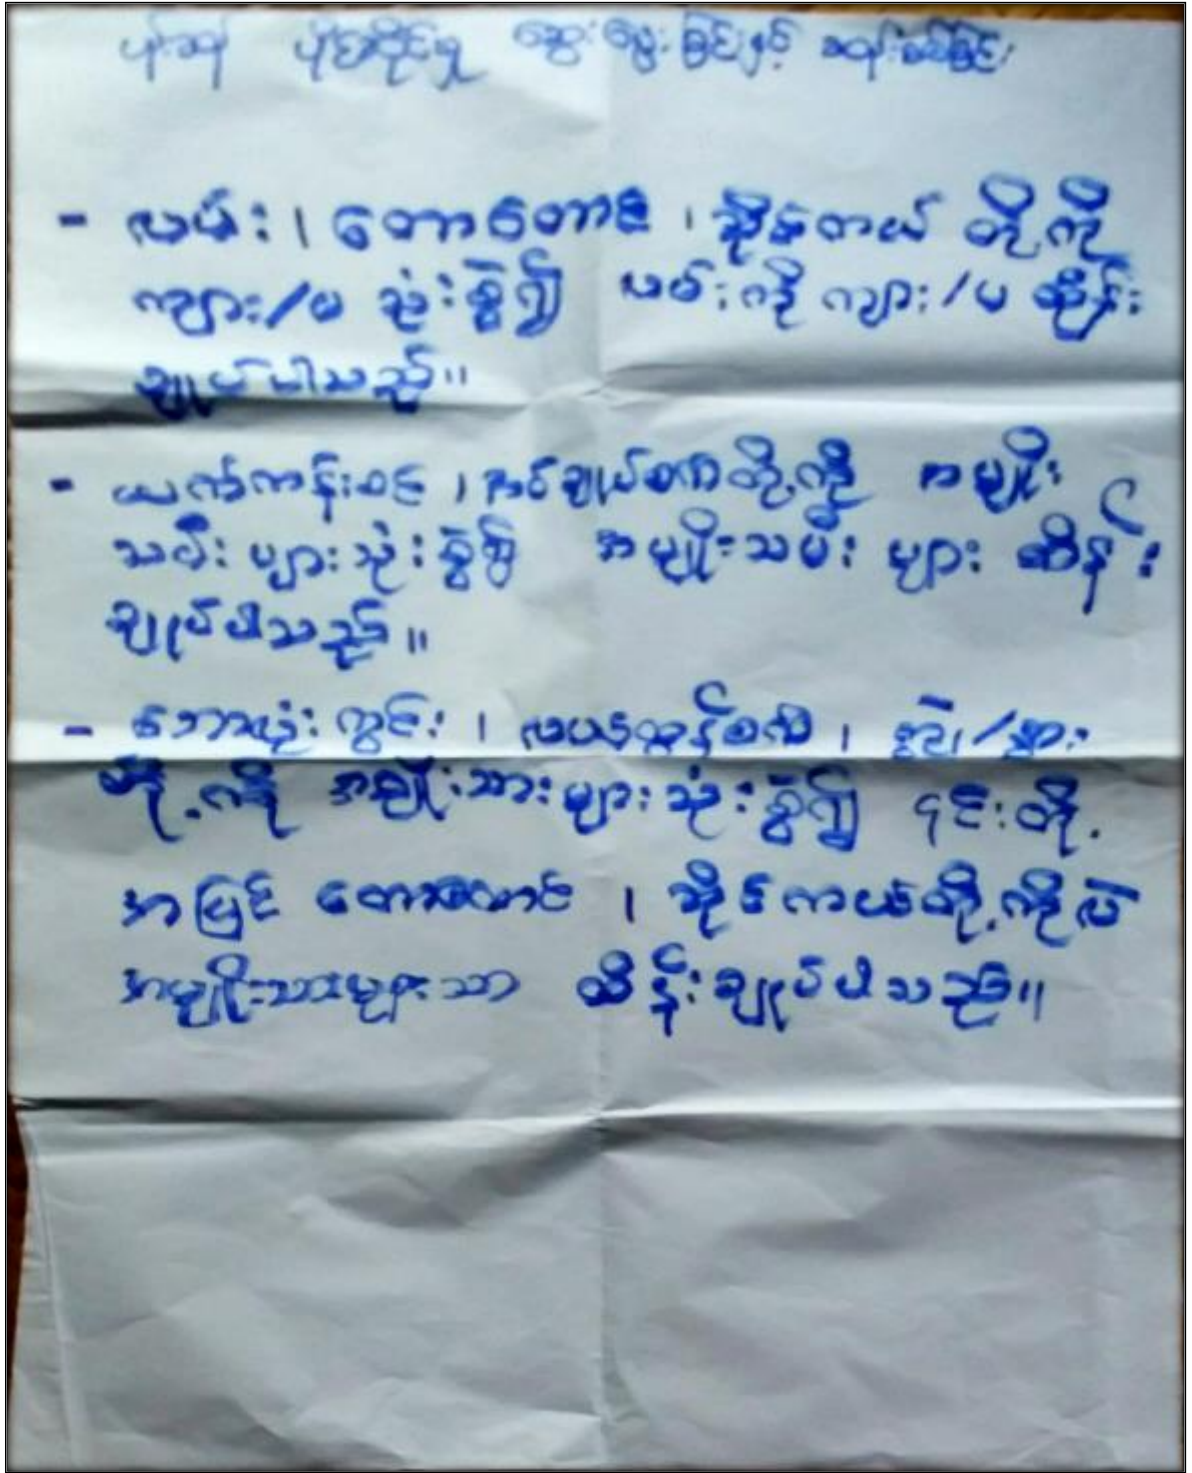 ပိုင်ဆိုင်မှု ဆွေးနွေးခြင်းနှင့် ဆန်းစစ်ခြင်း
- လမ်း၊ တောတောင်၊ ဆိုင်ကယ် တို့ကို
ကျား/မ သုံးစွဲ၍ လမ်းကို ကျား/မ ထိန်း
ချုပ်ပါသည်။
- ယက်ကန်းစင်၊ အပ်ချုပ်စက်တို့ကို အမျိုး
သမီး များသုံးစွဲ၍ အမျိုးသမီး များ ထိန်း
ချုပ်ပါသည်။
- ဘောလုံးကွင်း၊ လယ်ထွန်စက်၊ / နွား
တို့ကို အမျိုးသားများသုံးစွဲ၍ ၎င်းတို့
အပြင် တောတောင်၊ ဆိုင်ကယ်တို့ကိုလဲ
အမျိုးသားများသာ ထိန်းချုပ်ပါသည်။